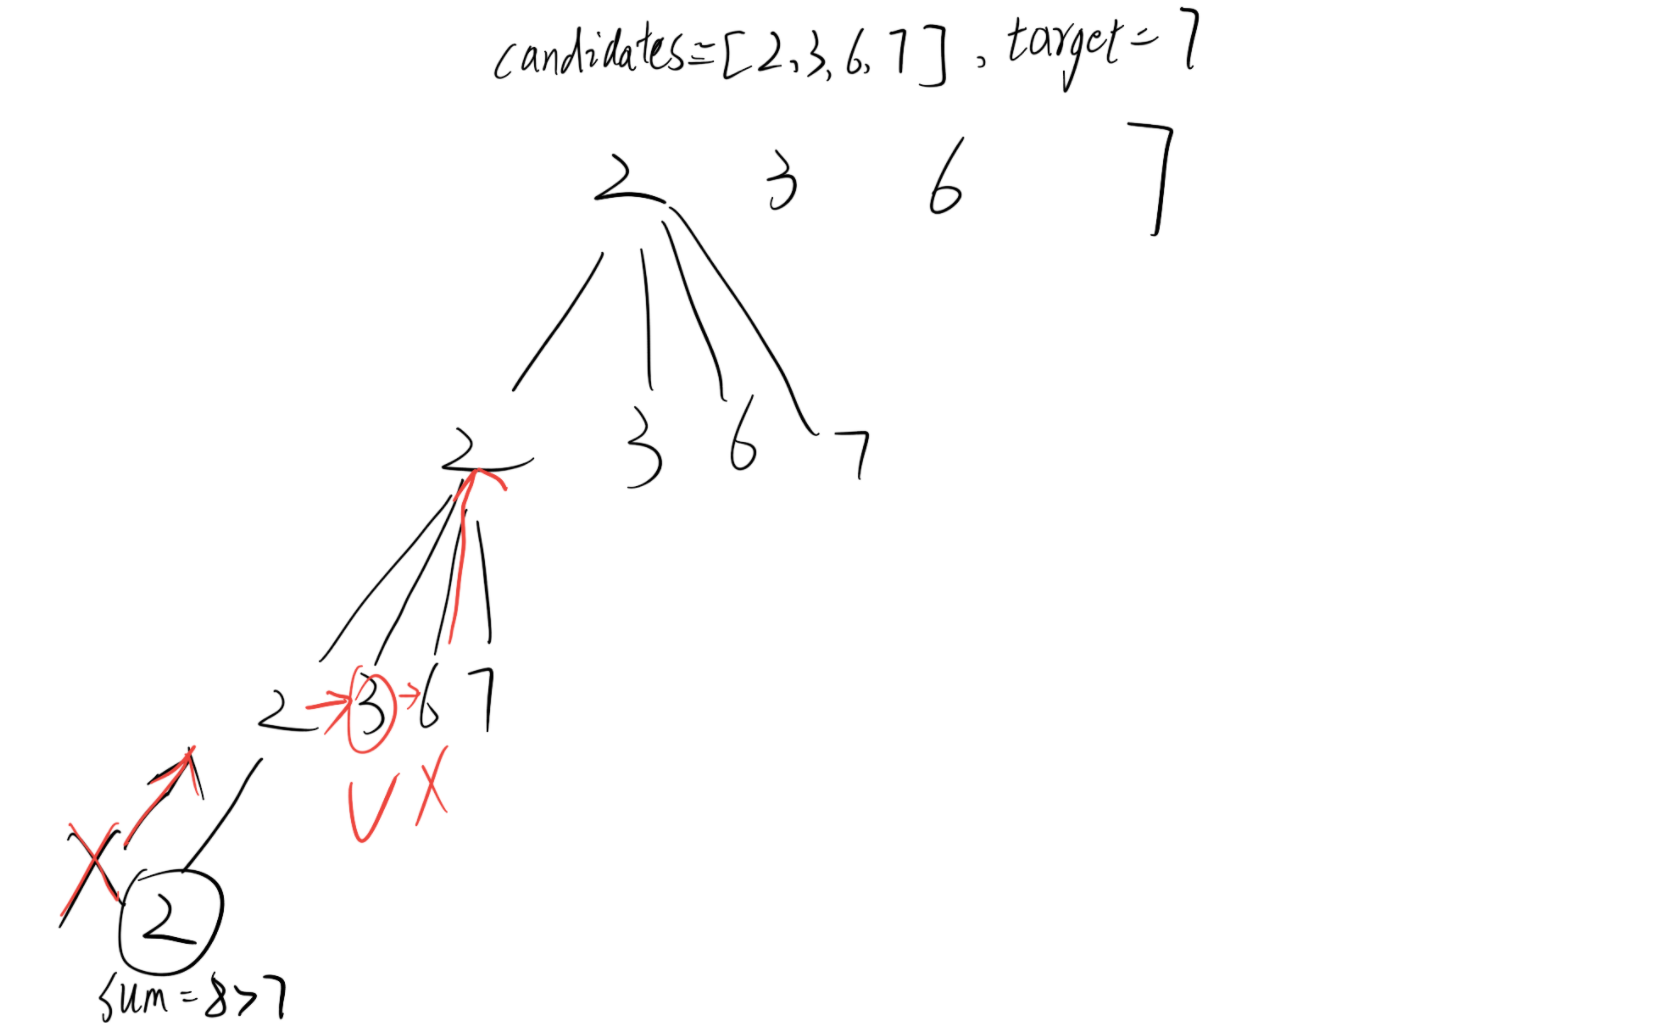 candidates=[2,3,6,7], target=7
2 3 6 7
2 3 6 7
2 3 6 7
2
sum=8>7